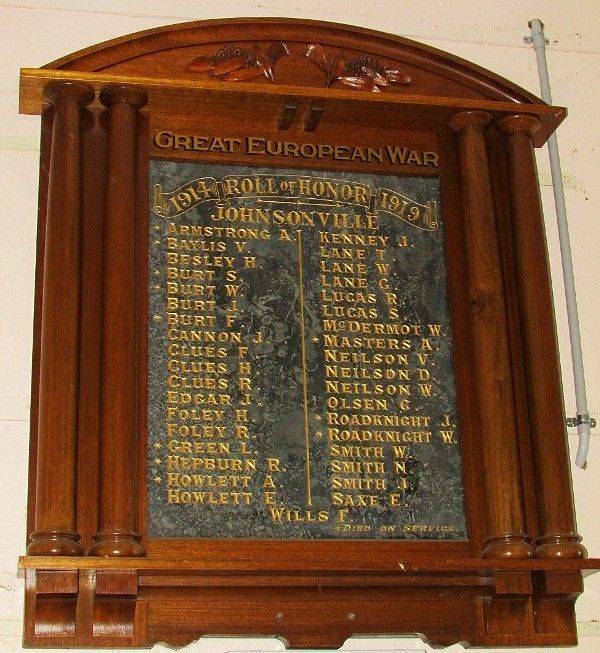 GREAT EUROPEAN WAR
1914 ROLL OF HONOR 1919
JOHNSONVILLE
* ARMSTRONG A.
* BAYLIS V.
BESLEY H.
* BURT S.
* BURT W.
BURT J.
* BURT F.
CANNON J.
CLUES F.
CLUES H.
CLUES R.
EDGAR J.
FOLEY H.
FOLEY R.
* GREEN L.
* HEPBURN R.
* HOWLETT A.
HOWLETT E.
KENNEY J.
LANE T.
LANE W.
LANE G.
LUCAS R.
LUCAS S.
McDERMOT W.
* MASTERS A.
NEILSON V.
NEILSON D.
NEILSON W.
OLSEN G.
* ROADKNIGHT J.
* ROADKNIGHT W.
SMITH W.
SMITH N.
SMITH J.
SAXE E.
WILLS F.
* DIED ON SERVICE